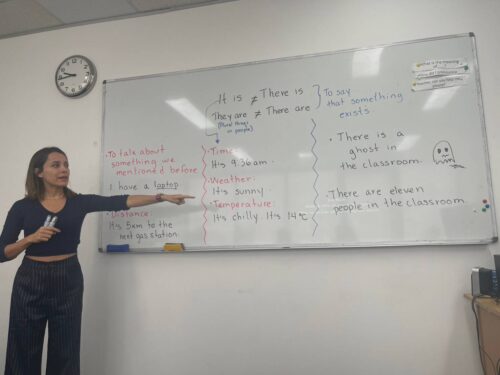 It is ≠ There is
They are ≠ There are
(Plural things
or people)
To say
that something
exists
• To talk about
something we
mentioned before
I have a laptop
• Distance:
It's 5km to the
next gas station.
• Time:
It's 9:36am.
• Weather:
It's sunny.
• Temperature:
It's chilly. It's 14°C
• There is a
ghost in
the classroom.
• There are eleven
people in the classroom